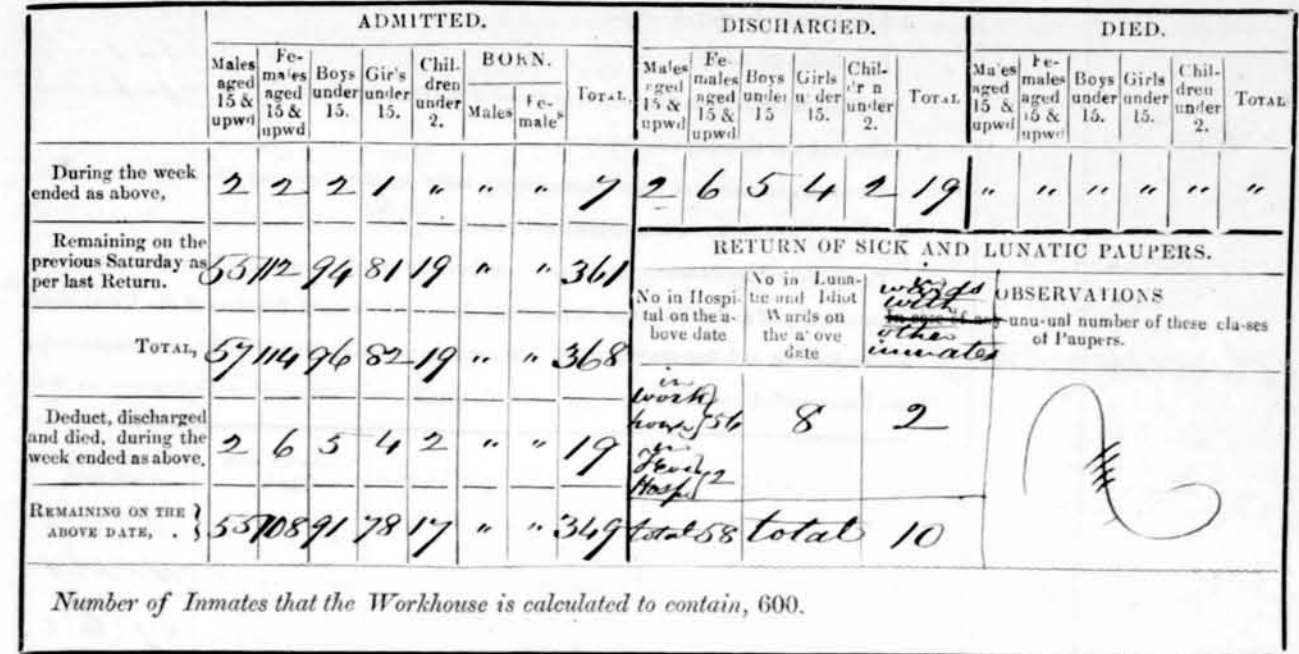 ADMITTED. DISCHARGED. DIED.
Males aged 15 & upwd | Females aged 15 & upwd | Boys under 15. | Girls under 15. | Children under 2. | BORN. Males | Females | TOTAL, | Males aged 15 & upwd | Females aged 15 & upwd | Boys under 15 | Girls under 15. | Children under 2. | TOTAL | Males aged 15 & upwd | Females aged 15 & upwd | Boys under 15. | Girls under 15. | Children under 2. | TOTAL
During the week ended as above, 2 2 2 1 " " " 7 2 6 5 4 2 19 " " " " " "
Remaining on the previous Saturday as per last Return. 55 112 94 81 19 " " 361
TOTAL, 57 114 96 82 19 " " 368
Deduct, discharged and died, during the week ended as above, 2 6 5 4 2 " " 19
REMAINING ON THE ABOVE DATE, . } 55 108 91 78 17 " " 349
RETURN OF SICK AND LUNATIC PAUPERS.
No in Hospital on the above date
No in Lunatic and Idiot Wards on the above date
in wards with other inmates
OBSERVATIONS
In case of any unusual number of these classes of Paupers.
in work house } 56 8 2
in Fever Hospl } 2
total 58 total 10
Number of Inmates that the Workhouse is calculated to contain, 600.